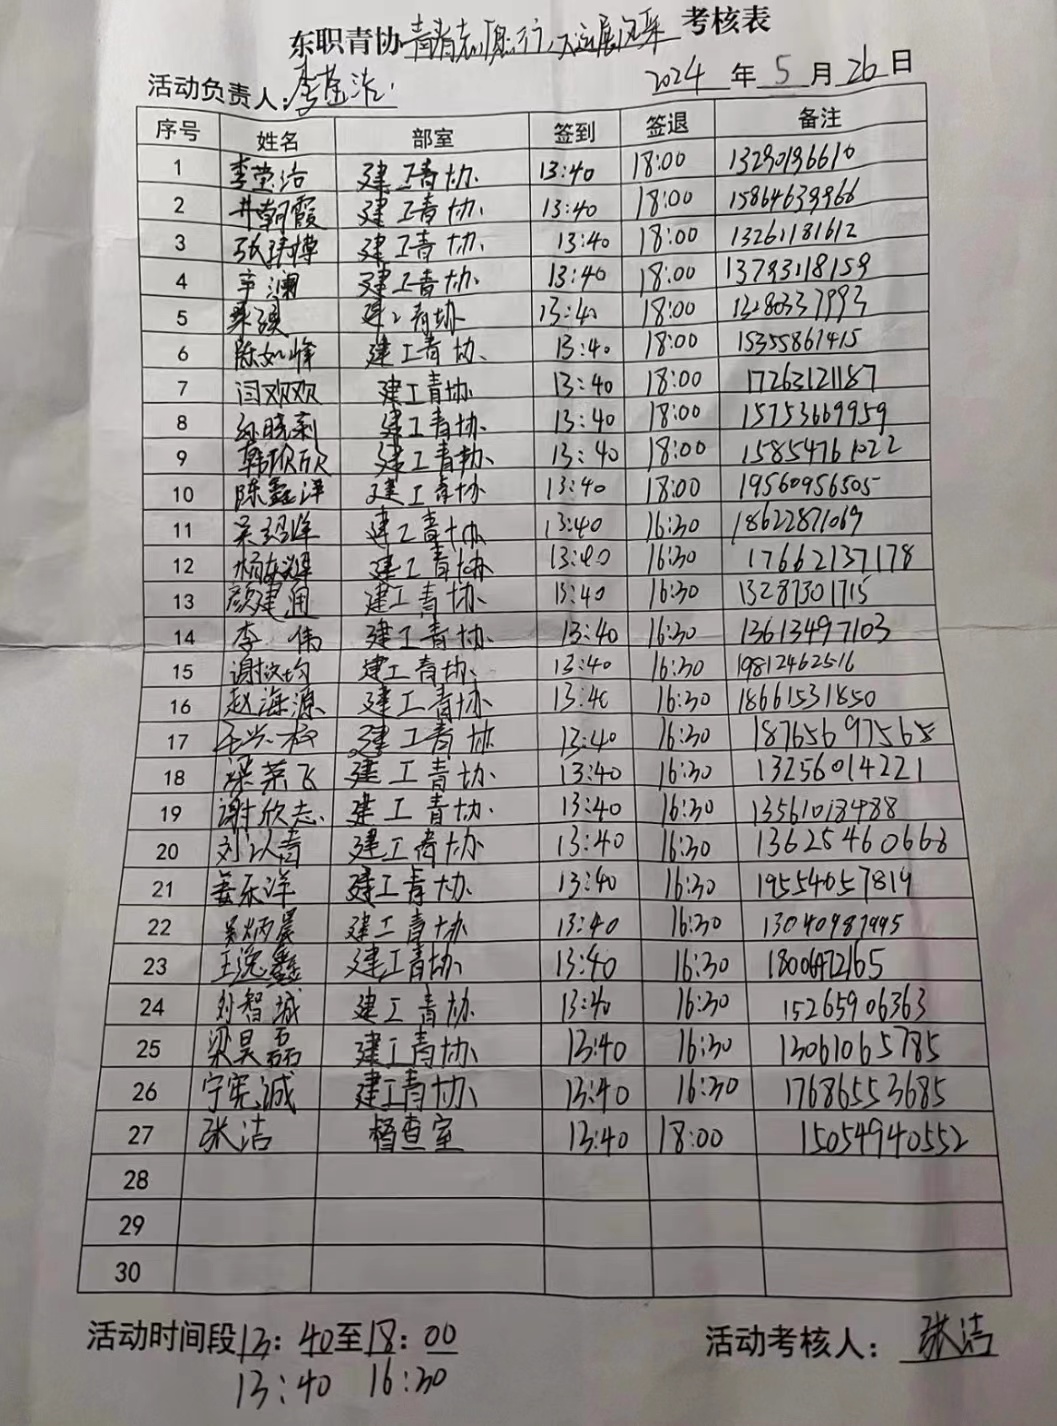 东职青协 青春志愿行,人运展风采 考核表
活动负责人: 李莹洁
2024 年 5 月 26 日
序号 姓名 部室 签到 签退 备注
1 李莹洁 建工青协 13:40 18:00 13290196610
2 井朝霞 建工青协 13:40 18:00 15864639866
3 张靖博 建工青协 13:40 18:00 13261181612
4 辛澜 建工青协 13:40 18:00 13793118159
5 建工青协 13:40 18:00 13280337993
6 陈如峰 建工青协 13:40 18:00 15355861415
7 闫欢欢 建工青协 13:40 18:00 17263121187
8 孙晓莉 建工青协 13:40 18:00 15753669959
9 韩欣欣 建工青协 13:40 18:00 15854761022
10 陈鑫泽 建工青协 13:40 18:00 19560956505
11 吴绍峰 建工青协 13:40 16:30 18622871069
12 杨东耀 建工青协 13:40 16:30 17662137178
13 颜建通 建工青协 13:40 16:30 13287301715
14 李伟 建工青协 13:40 16:30 13613497103
15 谢汶均 建工青协 13:40 16:30 19812462516
16 赵海源 建工青协 13:40 16:30 18661531850
17 建工青协 13:40 16:30 18765697568
18 梁荣飞 建工青协 13:40 16:30 13256014221
19 谢欣志 建工青协 13:40 16:30 13561018488
20 刘以青 建工青协 13:40 16:30 13625460668
21 姜乐洋 建工青协 13:40 16:30 19554057819
22 吴炳晨 建工青协 13:40 16:30 13040987995
23 王逸鑫 建工青协 13:40 16:30 18006472165
24 刘智城 建工青协 13:40 16:30 15265906363
25 梁昊磊 建工青协 13:40 16:30 13061065785
26 宁宪诚 建工青协 13:40 16:30 17686553685
27 张洁 督查室 13:40 18:00 15054940552
28
29
30
活动时间段 13:40至18:00
活动考核人: 张洁
13:40 16:30